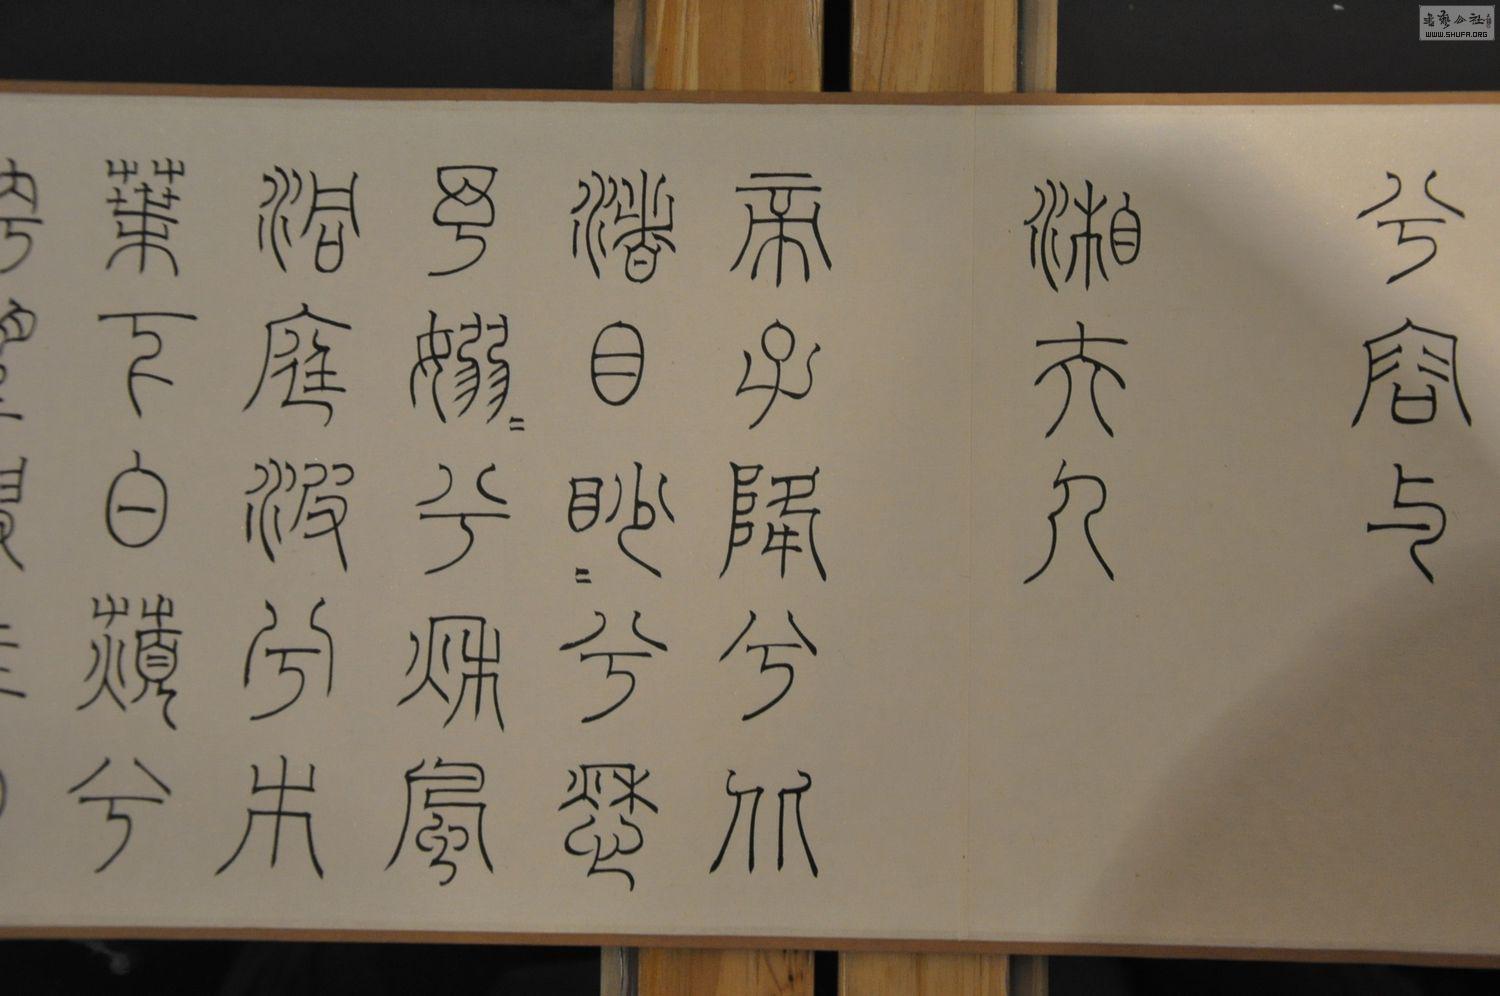 兮容与
湘夫人
帝子降兮北
渚目眇〓兮愁
予嫋〓兮秋風
洞庭波兮木
葉下白薠兮
WWW.SHUFA.ORG